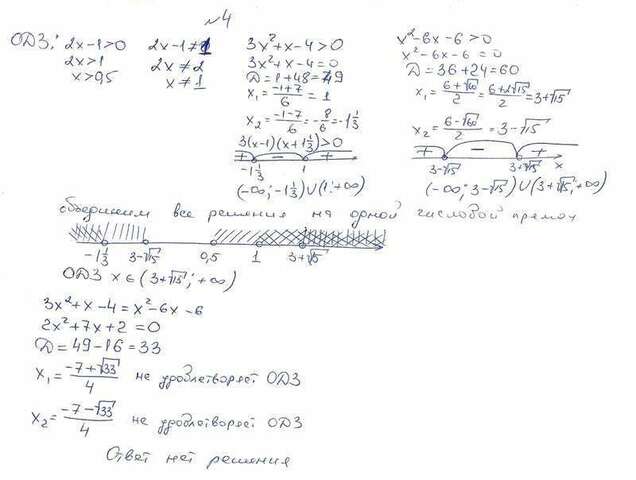 №4
ОДЗ: 2x-1>0
2x>1
x>0,5
2x-1≠1
2x≠2
x≠1
3x²+x-4>0
3x²+x-4=0
D=1+48=49
x₁=(-1+7)/6=1
x₂=(-1-7)/6=-8/6=-1 1/3
3(x-1)(x+1 1/3)>0
+ - +
-1 1/3 1
(-∞;-1 1/3)∪(1;+∞)
x²-6x-6>0
x²-6x-6=0
D=36+24=60
x₁=(6+√60)/2=(6+2√15)/2=3+√15
x₂=(6-√60)/2=3-√15
+ - +
3-√15 3+√15 x
(-∞;3-√15)∪(3+√15;+∞)
объединим все решения на одной числовой прямой
-1 1/3 3-√15 0,5 1 3+√15
ОДЗ x∈(3+√15;+∞)
3x²+x-4=x²-6x-6
2x²+7x+2=0
D=49-16=33
x₁=(-7+√33)/4 не удовлетворяет ОДЗ
x₂=(-7-√33)/4 не удовлетворяет ОДЗ
Ответ нет решения